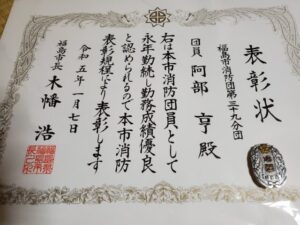 表彰状
福島市消防団第三十九分団
団員 阿部 亨 殿
右は本市消防団員として
永年勤続し勤務成績優良
と認められるので本市消防
表彰規程により表彰します
令和五年一月七日
福島市長 木幡 浩